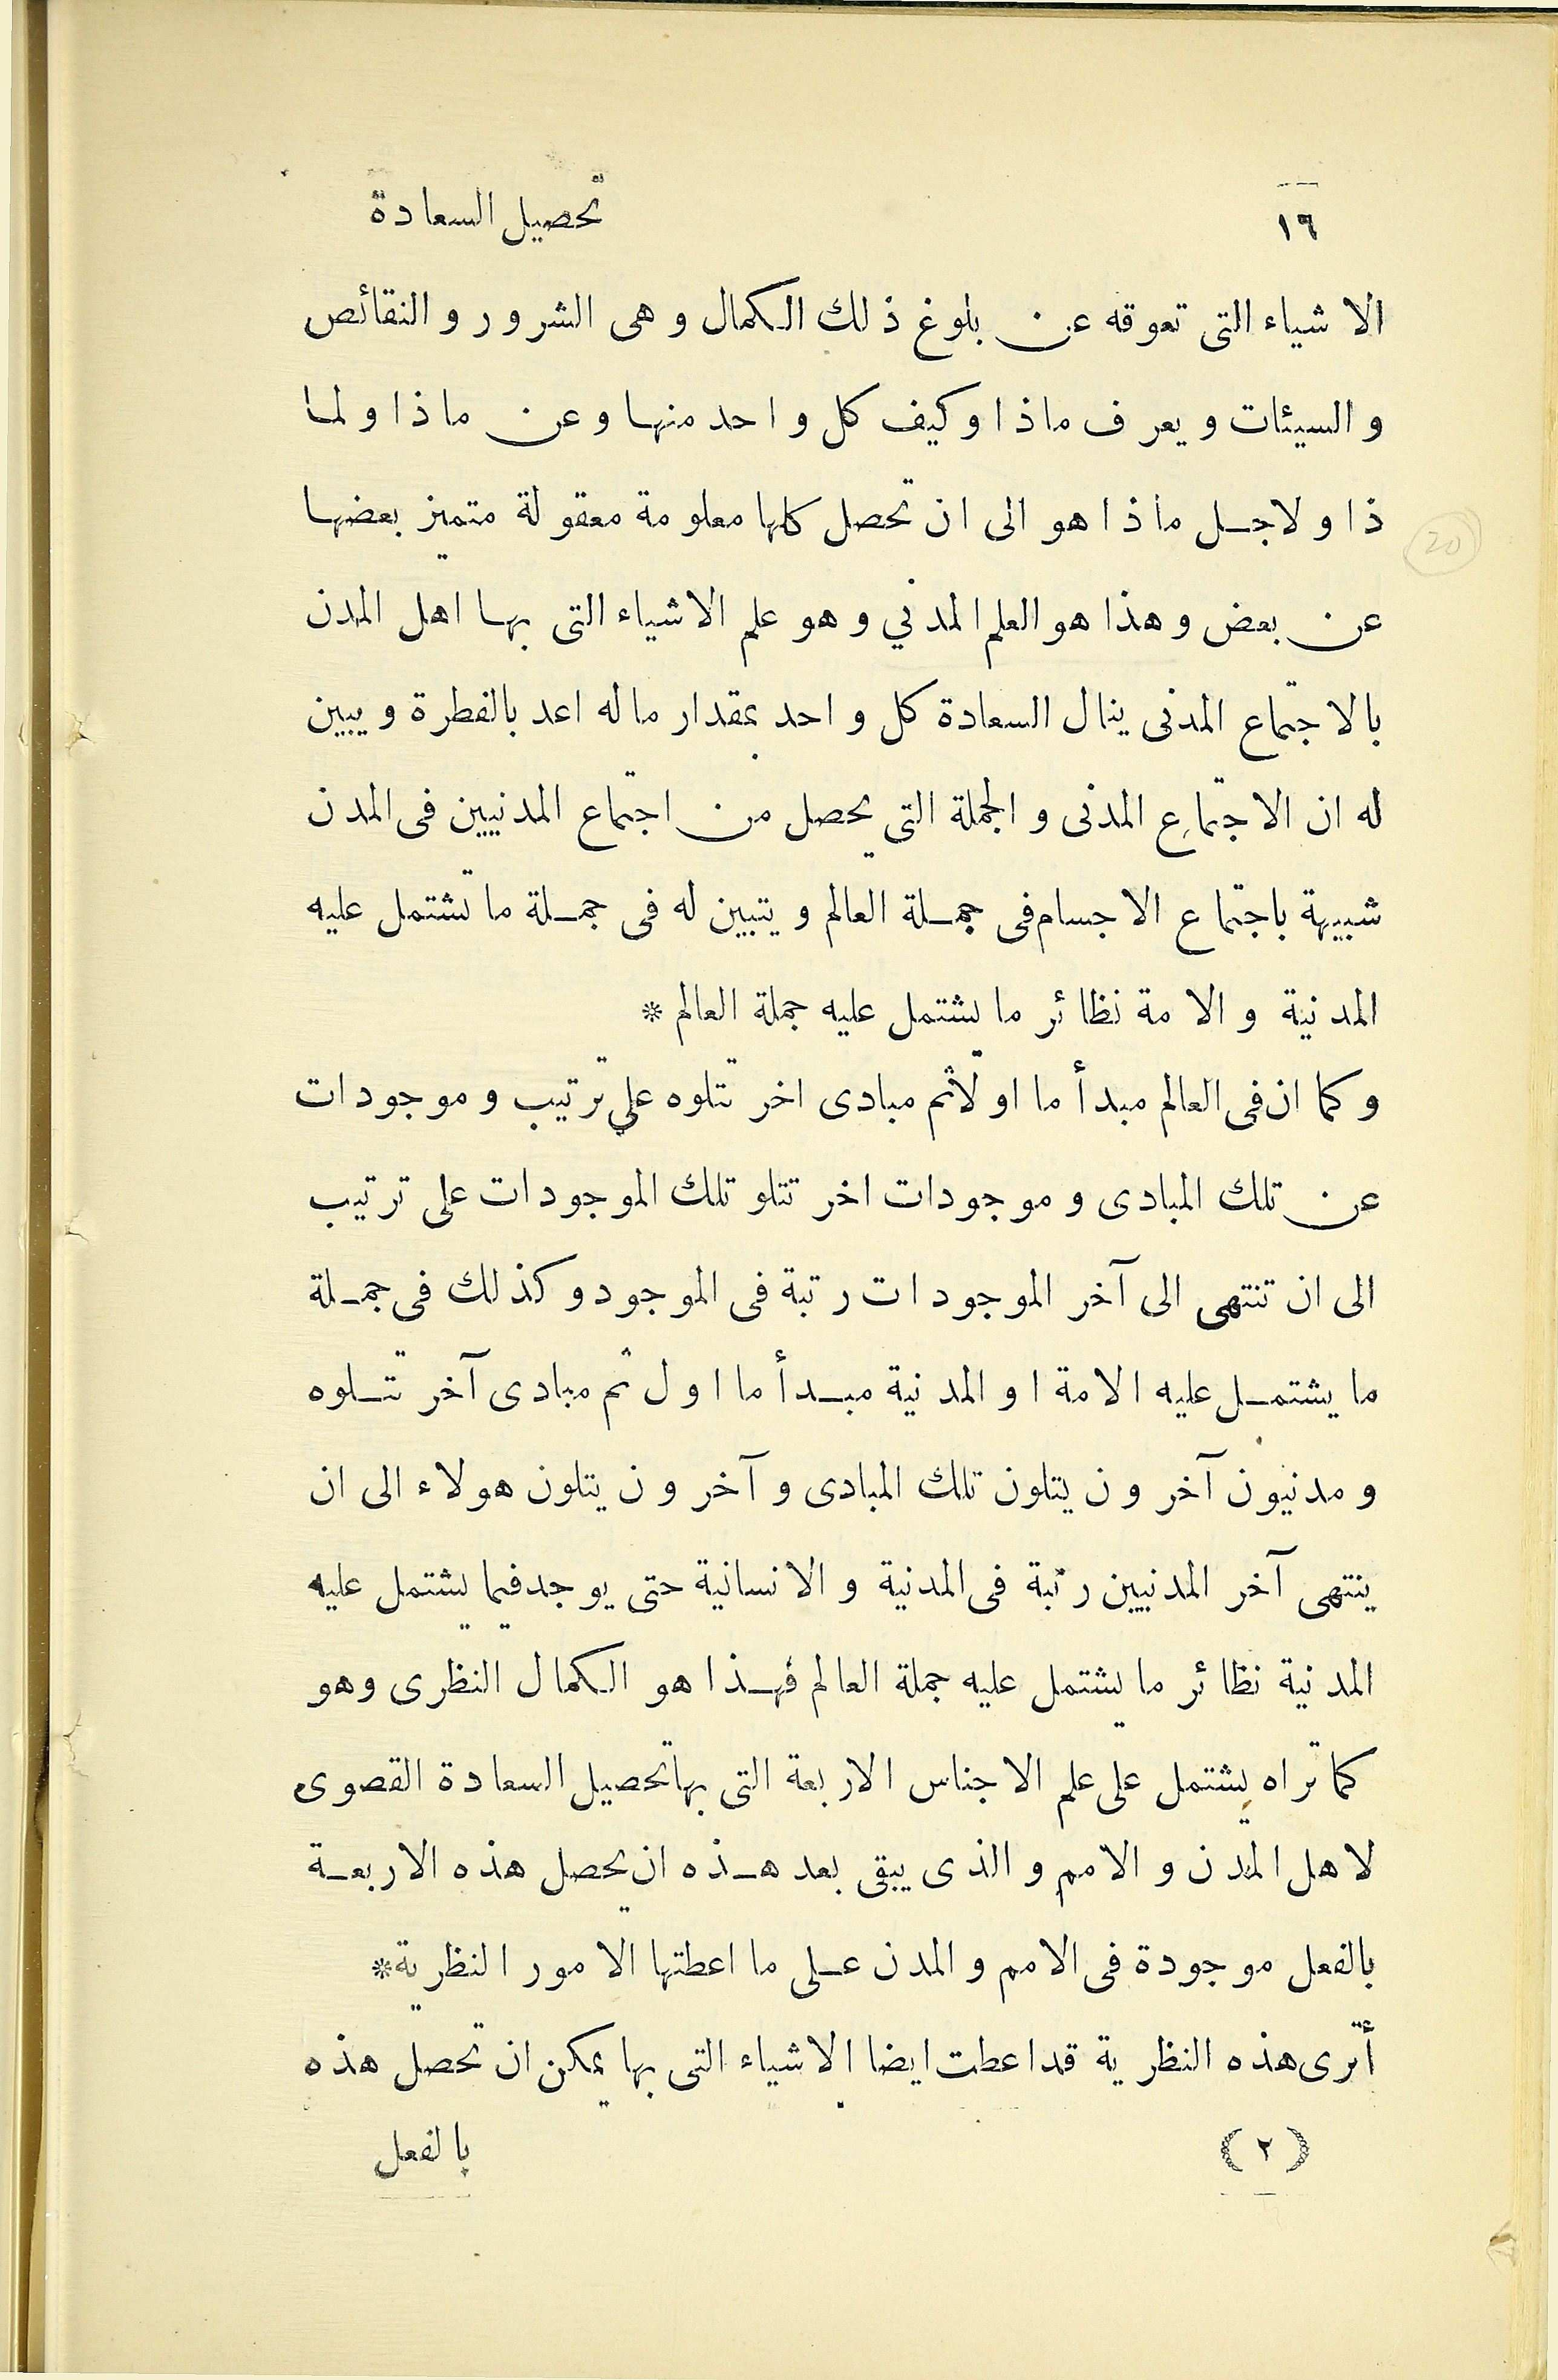 ١٦ تحصيل السعادة
الاشياء التى تعوقه عن بلوغ ذلك الكمال وهى الشرور والنقائص
والسيئات ويعرف ماذا وكيف كل واحد منها وعن ماذا ولما
ذا ولاجل ماذا هو الى ان تحصل كلها معلومة معقولة متميز بعضها
عن بعض وهذا هو العلم المدني وهو علم الاشياء التى بها اهل المدن
بالاجتماع المدنى ينال السعادة كل واحد بمقدار ماله اعد بالفطرة ويبين
له ان الاجتماع المدنى والجملة التى يحصل من اجتماع المدنيين فى المدن
شبيهة باجتماع الاجسام فى جملة العالم ويتبين له فى جملة ما تشتمل عليه
المدنية والامة نظائر ما يشتمل عليه جملة العالم *
وكما ان فى العالم مبدأ ما اولا ثم مبادى اخر تتلوه على ترتيب وموجودات
عن تلك المبادى وموجودات اخر تتلو تلك الموجودات على ترتيب
الى ان تنتهى الى آخر الموجودات رتبة فى الموجود وكذلك فى جملة
ما يشتمل عليه الامة او المدنية مبدأ ما اول ثم مبادى آخر تتلوه
ومدنيون آخرون يتلون تلك المبادى وآخرون يتلون هولاء الى ان
ينتهى آخر المدنيين رتبة فى المدنية والانسانية حتى يوجد فيما يشتمل عليه
المدنية نظائر ما يشتمل عليه جملة العالم فهذا هو الكمال النظرى وهو
كما تراه يشتمل على علم الاجناس الاربعة التى بها تحصيل السعادة القصوى
لاهل المدن والامم والذى يبقى بعد هذه ان يحصل هذه الاربعة
بالفعل موجودة فى الامم والمدن على ما اعطتها الامور النظرية *
أترى هذه النظرية قد اعطت ايضا الاشياء التى بها يمكن ان تحصل هذه
(٢) بالفعل
20